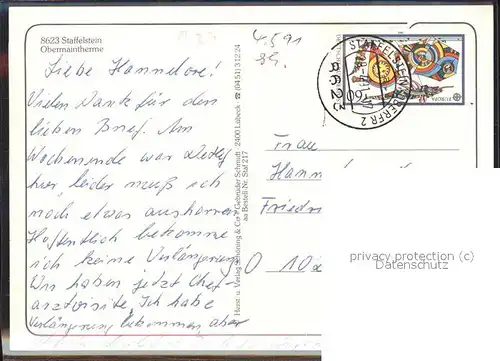 8623 Staffelstein
Obermaintherme
4.5.91
Liebe Hannelore!
Vielen Dank für den
lieben Brief. Am
Wochenende war Detlef
hier, leider muß ich
noch etwas ausharren.
Hoffentlich bekomme
ich keine Verlängerung
Wir haben jetzt Chef-
arztvisite, Ich habe
Verlängerung bekommen, aber
Herst. u. Verlag Schöning & Co + Gebrüder Schmidt · 2400 Lübeck · ☎ (04 51) 3 12 24
aa Bestell-Nr. Staf 217
STAFFELSTEIN, OBERFR 2
8623
EUROPA
60
Frau
Hann
Friedr
O 10
privacy protection (c)
Datenschutz